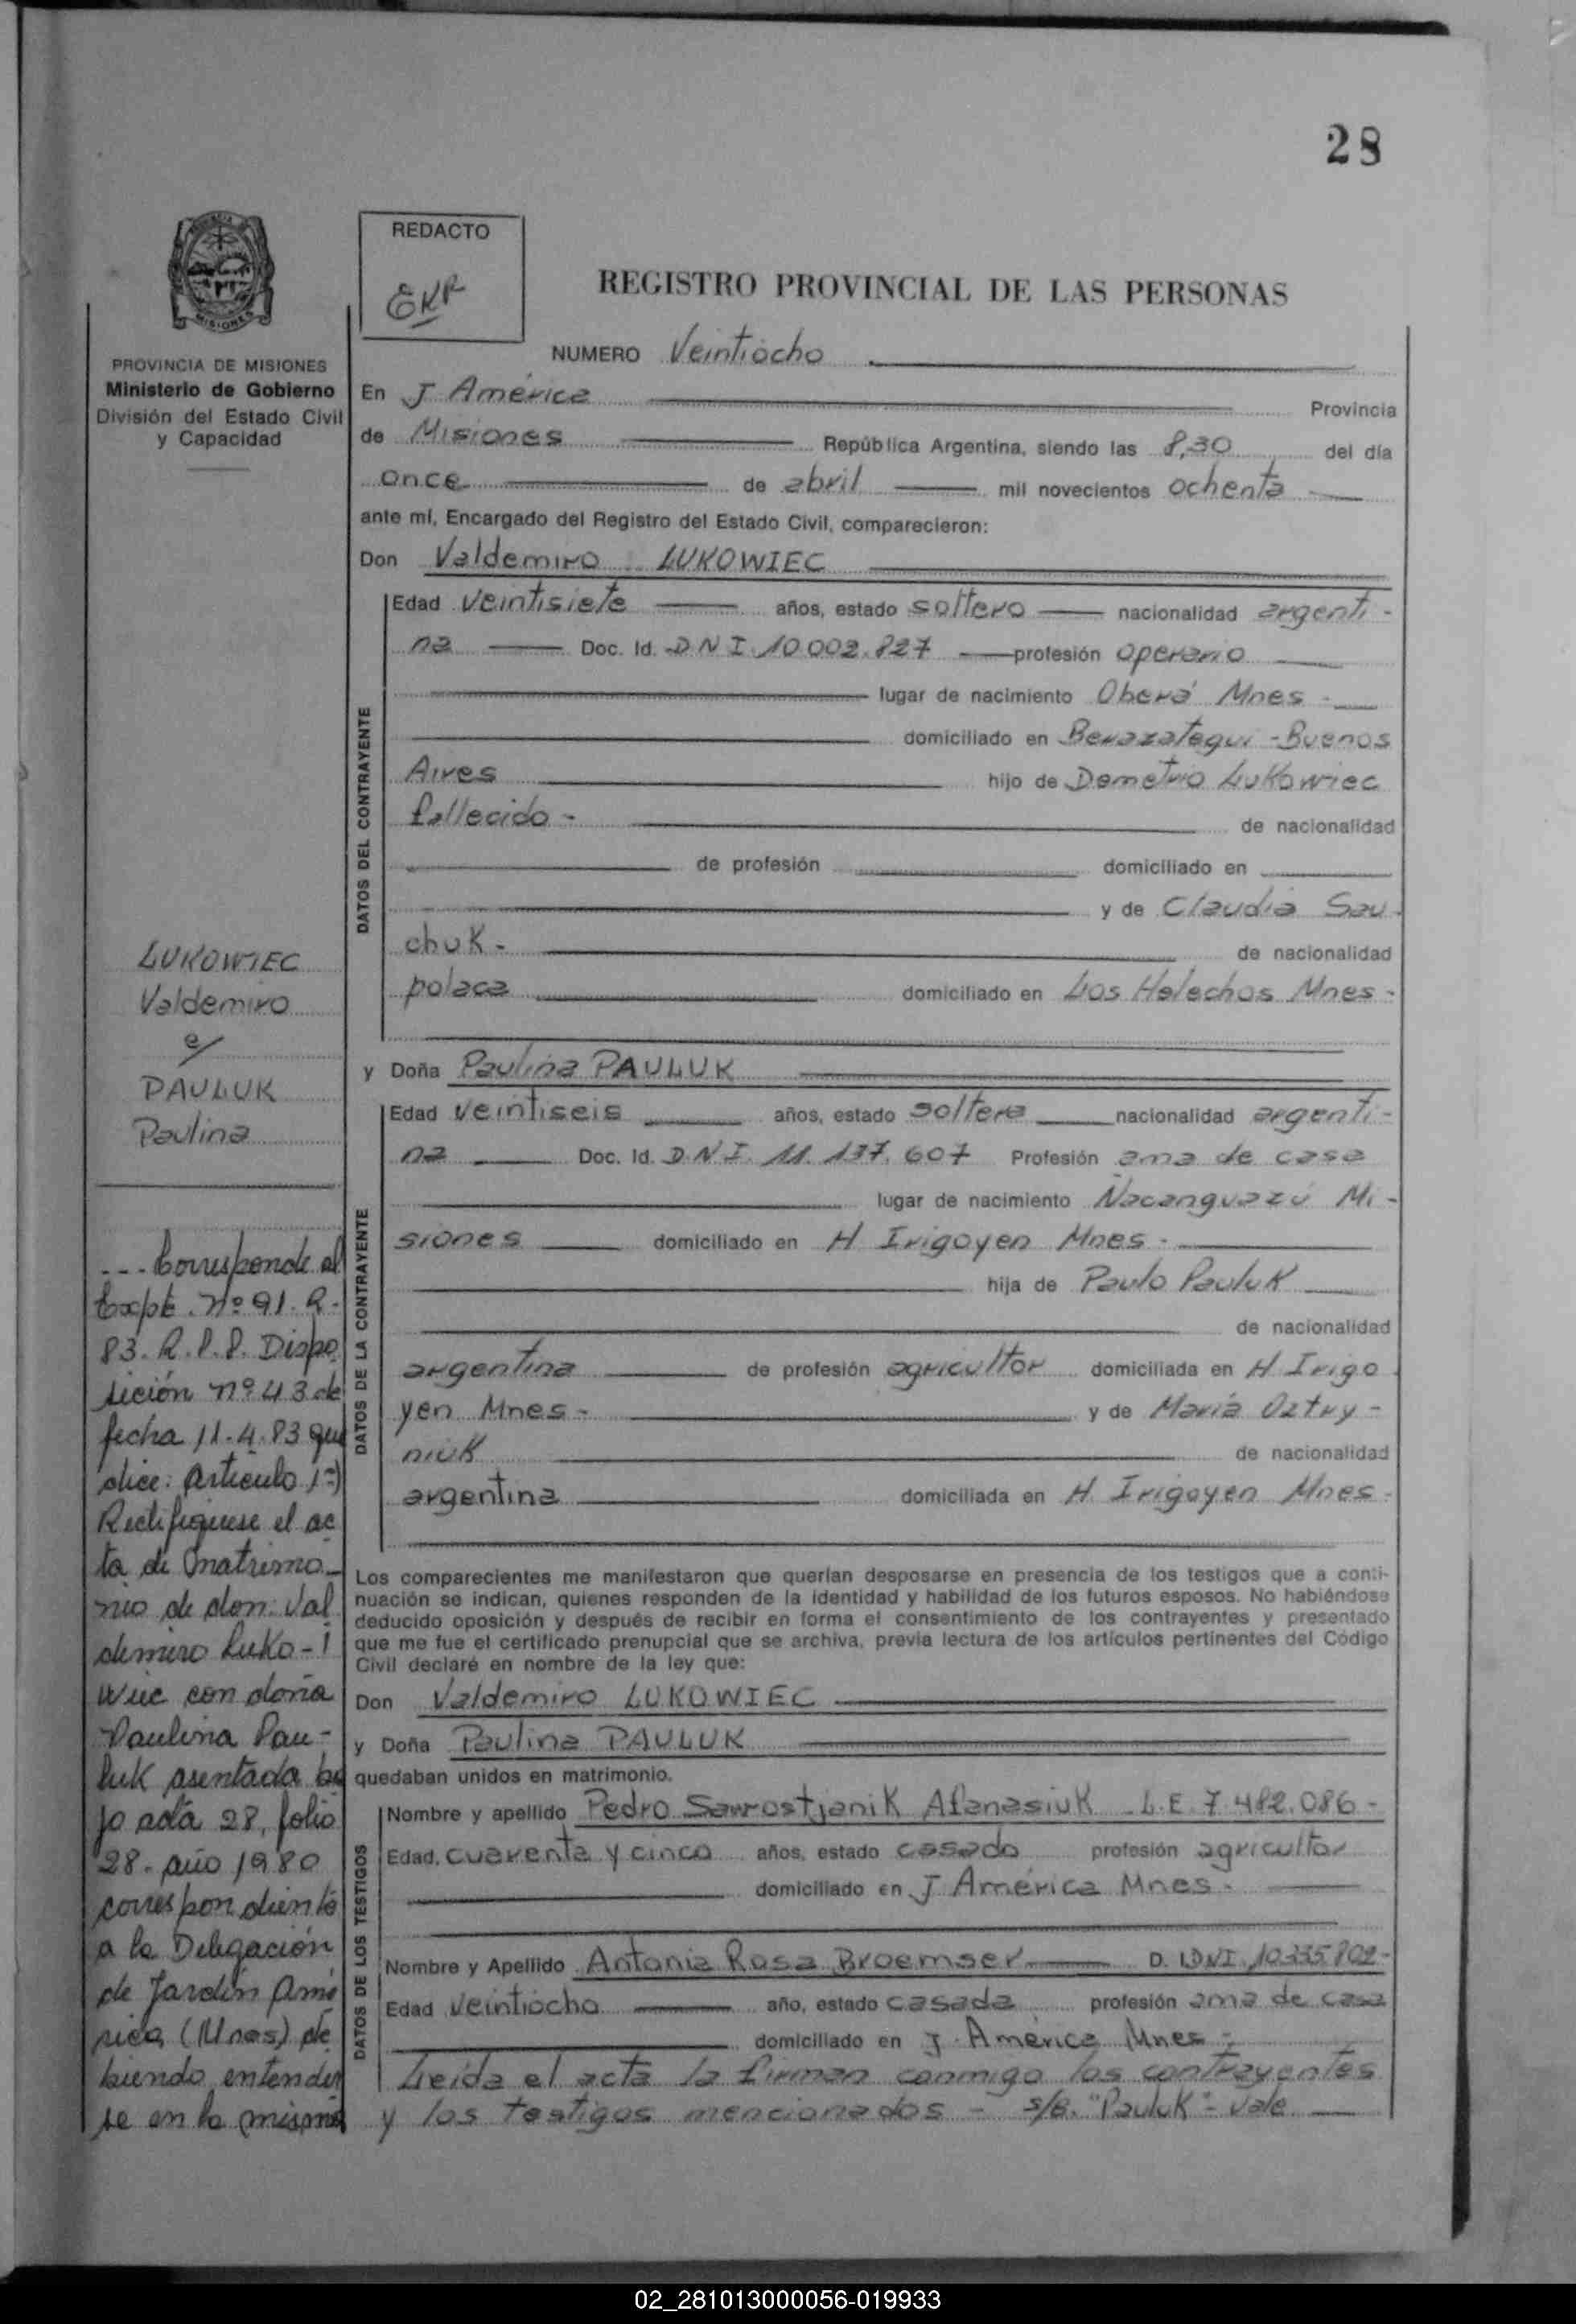 28
REDACTO
EKR
REGISTRO PROVINCIAL DE LAS PERSONAS
MISIONES
PROVINCIA DE MISIONES
Ministerio de Gobierno
División del Estado Civil
y Capacidad
NUMERO Veintiocho
En J América Provincia
de Misiones República Argentina, siendo las 8,30 del día
once de abril mil novecientos ochenta
ante mí, Encargado del Registro del Estado Civil, comparecieron:
Don Valdemiro LUKOWIEC
DATOS DEL CONTRAYENTE
Edad veintisiete años, estado soltero nacionalidad argenti-
na Doc. Id. DNI 10 002.827 profesión operario
lugar de nacimiento Oberá Mnes -
domiciliado en Berazategui - Buenos
Aires hijo de Demetrio Lukowiec
fallecido - de nacionalidad
de profesión domiciliado en
y de Claudia Sau-
chuk - de nacionalidad
polaca domiciliado en Los Helechos Mnes -
y Doña Paulina PAULUK
DATOS DE LA CONTRAYENTE
Edad veintiseis años, estado soltera nacionalidad argenti-
na Doc. Id. D.N.I. 11.137.607 Profesión ama de casa
lugar de nacimiento Ñacanguazú Mi-
siones domiciliado en H Irigoyen Mnes -
hija de Paulo Pauluk
de nacionalidad
argentina de profesión agricultor domiciliada en H Irigo
yen Mnes - y de María Oztry-
niuk de nacionalidad
argentina domiciliada en H Irigoyen Mnes -
Los comparecientes me manifestaron que querían desposarse en presencia de los testigos que a conti-
nuación se indican, quienes responden de la identidad y habilidad de los futuros esposos. No habiéndose
deducido oposición y después de recibir en forma el consentimiento de los contrayentes y presentado
que me fue el certificado prenupcial que se archiva, previa lectura de los artículos pertinentes del Código
Civil declaré en nombre de la ley que:
Don Valdemiro LUKOWIEC
y Doña Paulina PAULUK
quedaban unidos en matrimonio.
DATOS DE LOS TESTIGOS
Nombre y apellido Pedro Sawrostjanik Afanasiuk L.E. 7.482.086 -
Edad, cuarenta y cinco años, estado casado profesión agricultor
domiciliado en J América Mnes -
Nombre y Apellido Antonia Rosa Broemser D. I. DNI. 10.335.802 -
Edad veintiocho año, estado casada profesión ama de casa
domiciliado en J. América Mnes -
Leída el acta la firman conmigo los contrayentes
y los testigos mencionados - s/b. "Pauluk" - vale
LUKOWIEC
Valdemiro
c/
PAULUK
Paulina
--- Corresponde al
Expte. nº 91. R.
83. R.P.P. Dispo
sición nº 43 de
fecha 11.4.83 que
dice: Artículo 1º)
Rectifiquese el ac
ta de matrimo-
nio de don: Val
demiro Luko-
wiec con doña
Paulina Pau-
luk asentada ba
jo acta 28, folio
28 - año 1980
correspondiente
a la Delegación
de Jardín Amé
rica (Mnes) de
biendo entender
se en la misma
02_281013000056-019933